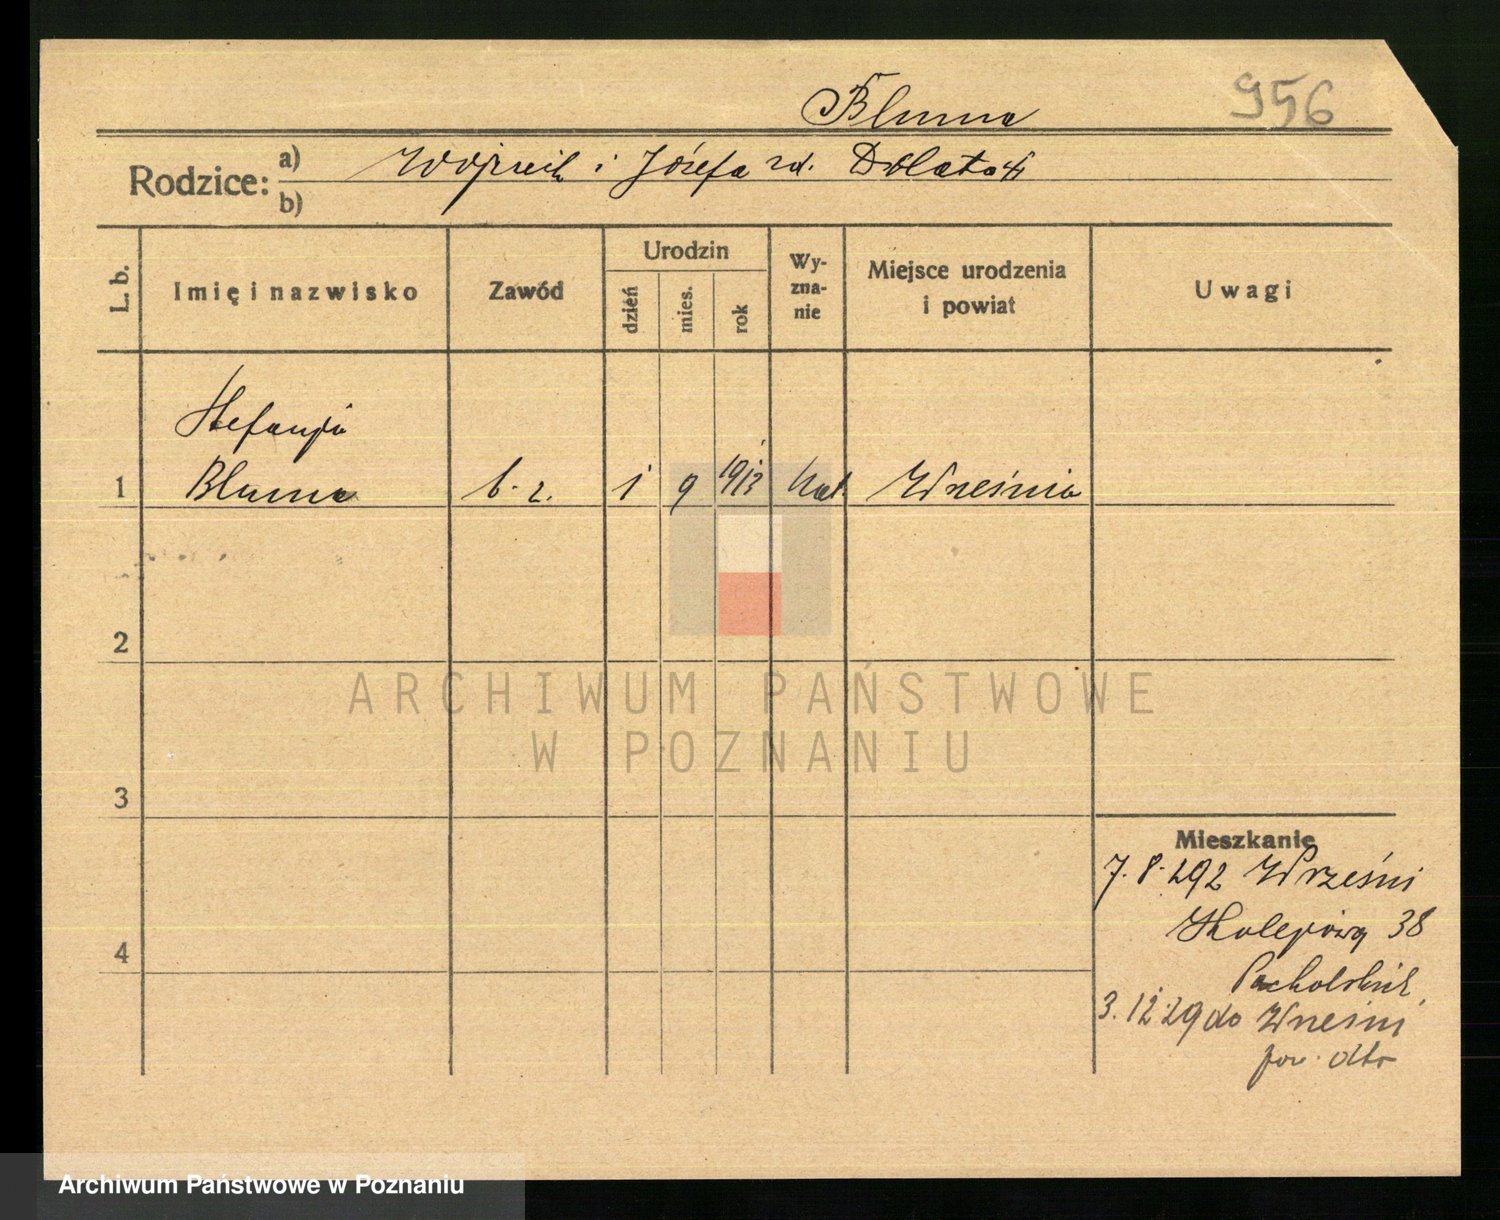 956
Bluma
Rodzice: a) Wojciech i Józefa zd. Dolata
b)
L. b.
Imię i nazwisko
Zawód
Urodzin
dzień
mies.
rok
Wy-
zna-
nie
Miejsce urodzenia
i powiat
Uwagi
Stefanja
1 Bluma b. z. 1 9 1913 kat. Września
2
ARCHIWUM PAŃSTWOWE
W POZNANIU
3
4
Mieszkanie
7. 8. 29 z Wrześni
38
3. 12. 29 do Wrześni
pow. dto
Archiwum Państwowe w Poznaniu